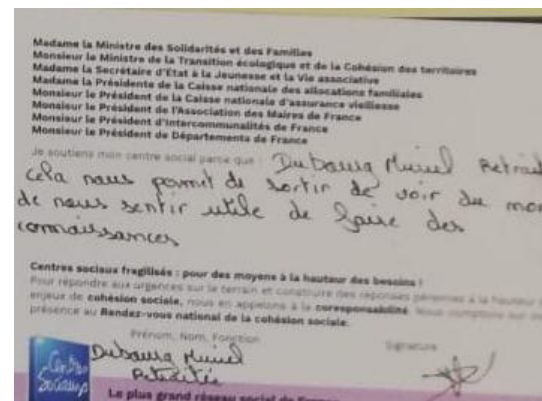 Madame la Ministre des Solidarités et des Familles
Monsieur le Ministre de la Transition écologique et de la Cohésion des territoires
Madame la Secrétaire d'État à la Jeunesse et la Vie associative
Madame la Présidente de la Caisse nationale des allocations familiales
Monsieur le Président de la Caisse nationale d'assurance vieillesse
Monsieur le Président de l'Association des Maires de France
Monsieur le Président d'Intercommunalités de France
Monsieur le Président de Départements de France
Je soutiens mon centre social parce que : Dubourg Muriel Retrait
cela nous permet de sortir de voir du mon
de nous sentir utile de faire des
connaissances
Centres sociaux fragilisés : pour des moyens à la hauteur des besoins !
Pour répondre aux urgences sur le terrain et construire des réponses pérennes à la hauteur
enjeux de cohésion sociale, nous en appelons à la coresponsabilité. Nous comptons sur
présence au Rendez-vous national de la cohésion sociale.
Prénom, Nom, Fonction
Signature
Dubourg Muriel
Retraitée
Centres
sociaux
Le plus grand réseau social de